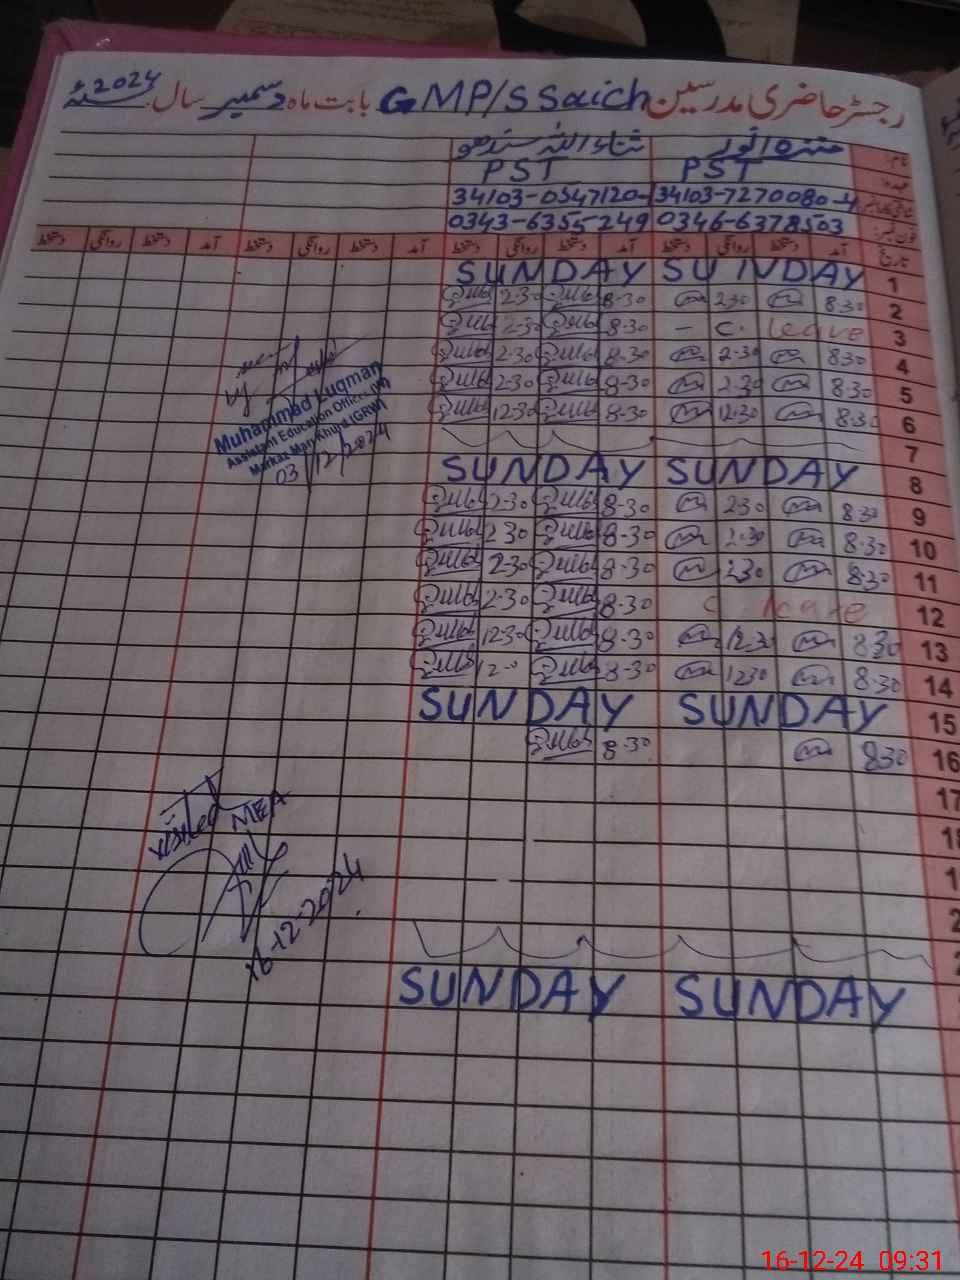 رجسٹر حاضری مدرسین GMP/S Saich بابت ماہ دسمبر سال 2024
نام: ثناء اللہ سندھو
عہدہ: PST PST
شناختی کارڈ نمبر 34103-7270080-4 34103-0547120-
فون نمبر: 0346-6378503 0343-6355-249
تاریخ آمد دستخط روانگی دستخط آمد دستخط روانگی دستخط آمد دستخط روانگی دستخط آمد دستخط روانگی دستخط
1 SUNDAY SUNDAY
2 8.30 2.30 8-30 2-30
3 C. leave - 8-30 2-30
4 8.30 2-30 8-30 2-30
5 8-30 2-30 8-30 2-30
6 8-30 12-30 8-30 12-30
7
8 SUNDAY SUNDAY
9 8.30 2.30 8-30 2-30
10 8-30 2-30 8-30 2 30
11 8-30 2.30 8-30 2-30
12 C leave 8-30 2-30
13 8.30 12.30 8-30 12-30
14 8-30 1230 8-30
15 SUNDAY SUNDAY
16 830 8-30
17
18
SUNDAY SUNDAY
Muhammad Luqman
Assistant Education Officer (M)
Markaz Mari Khurd (GRW)
03/12/2024
Visited
MEA
16-12-2024
16-12-24 09:31